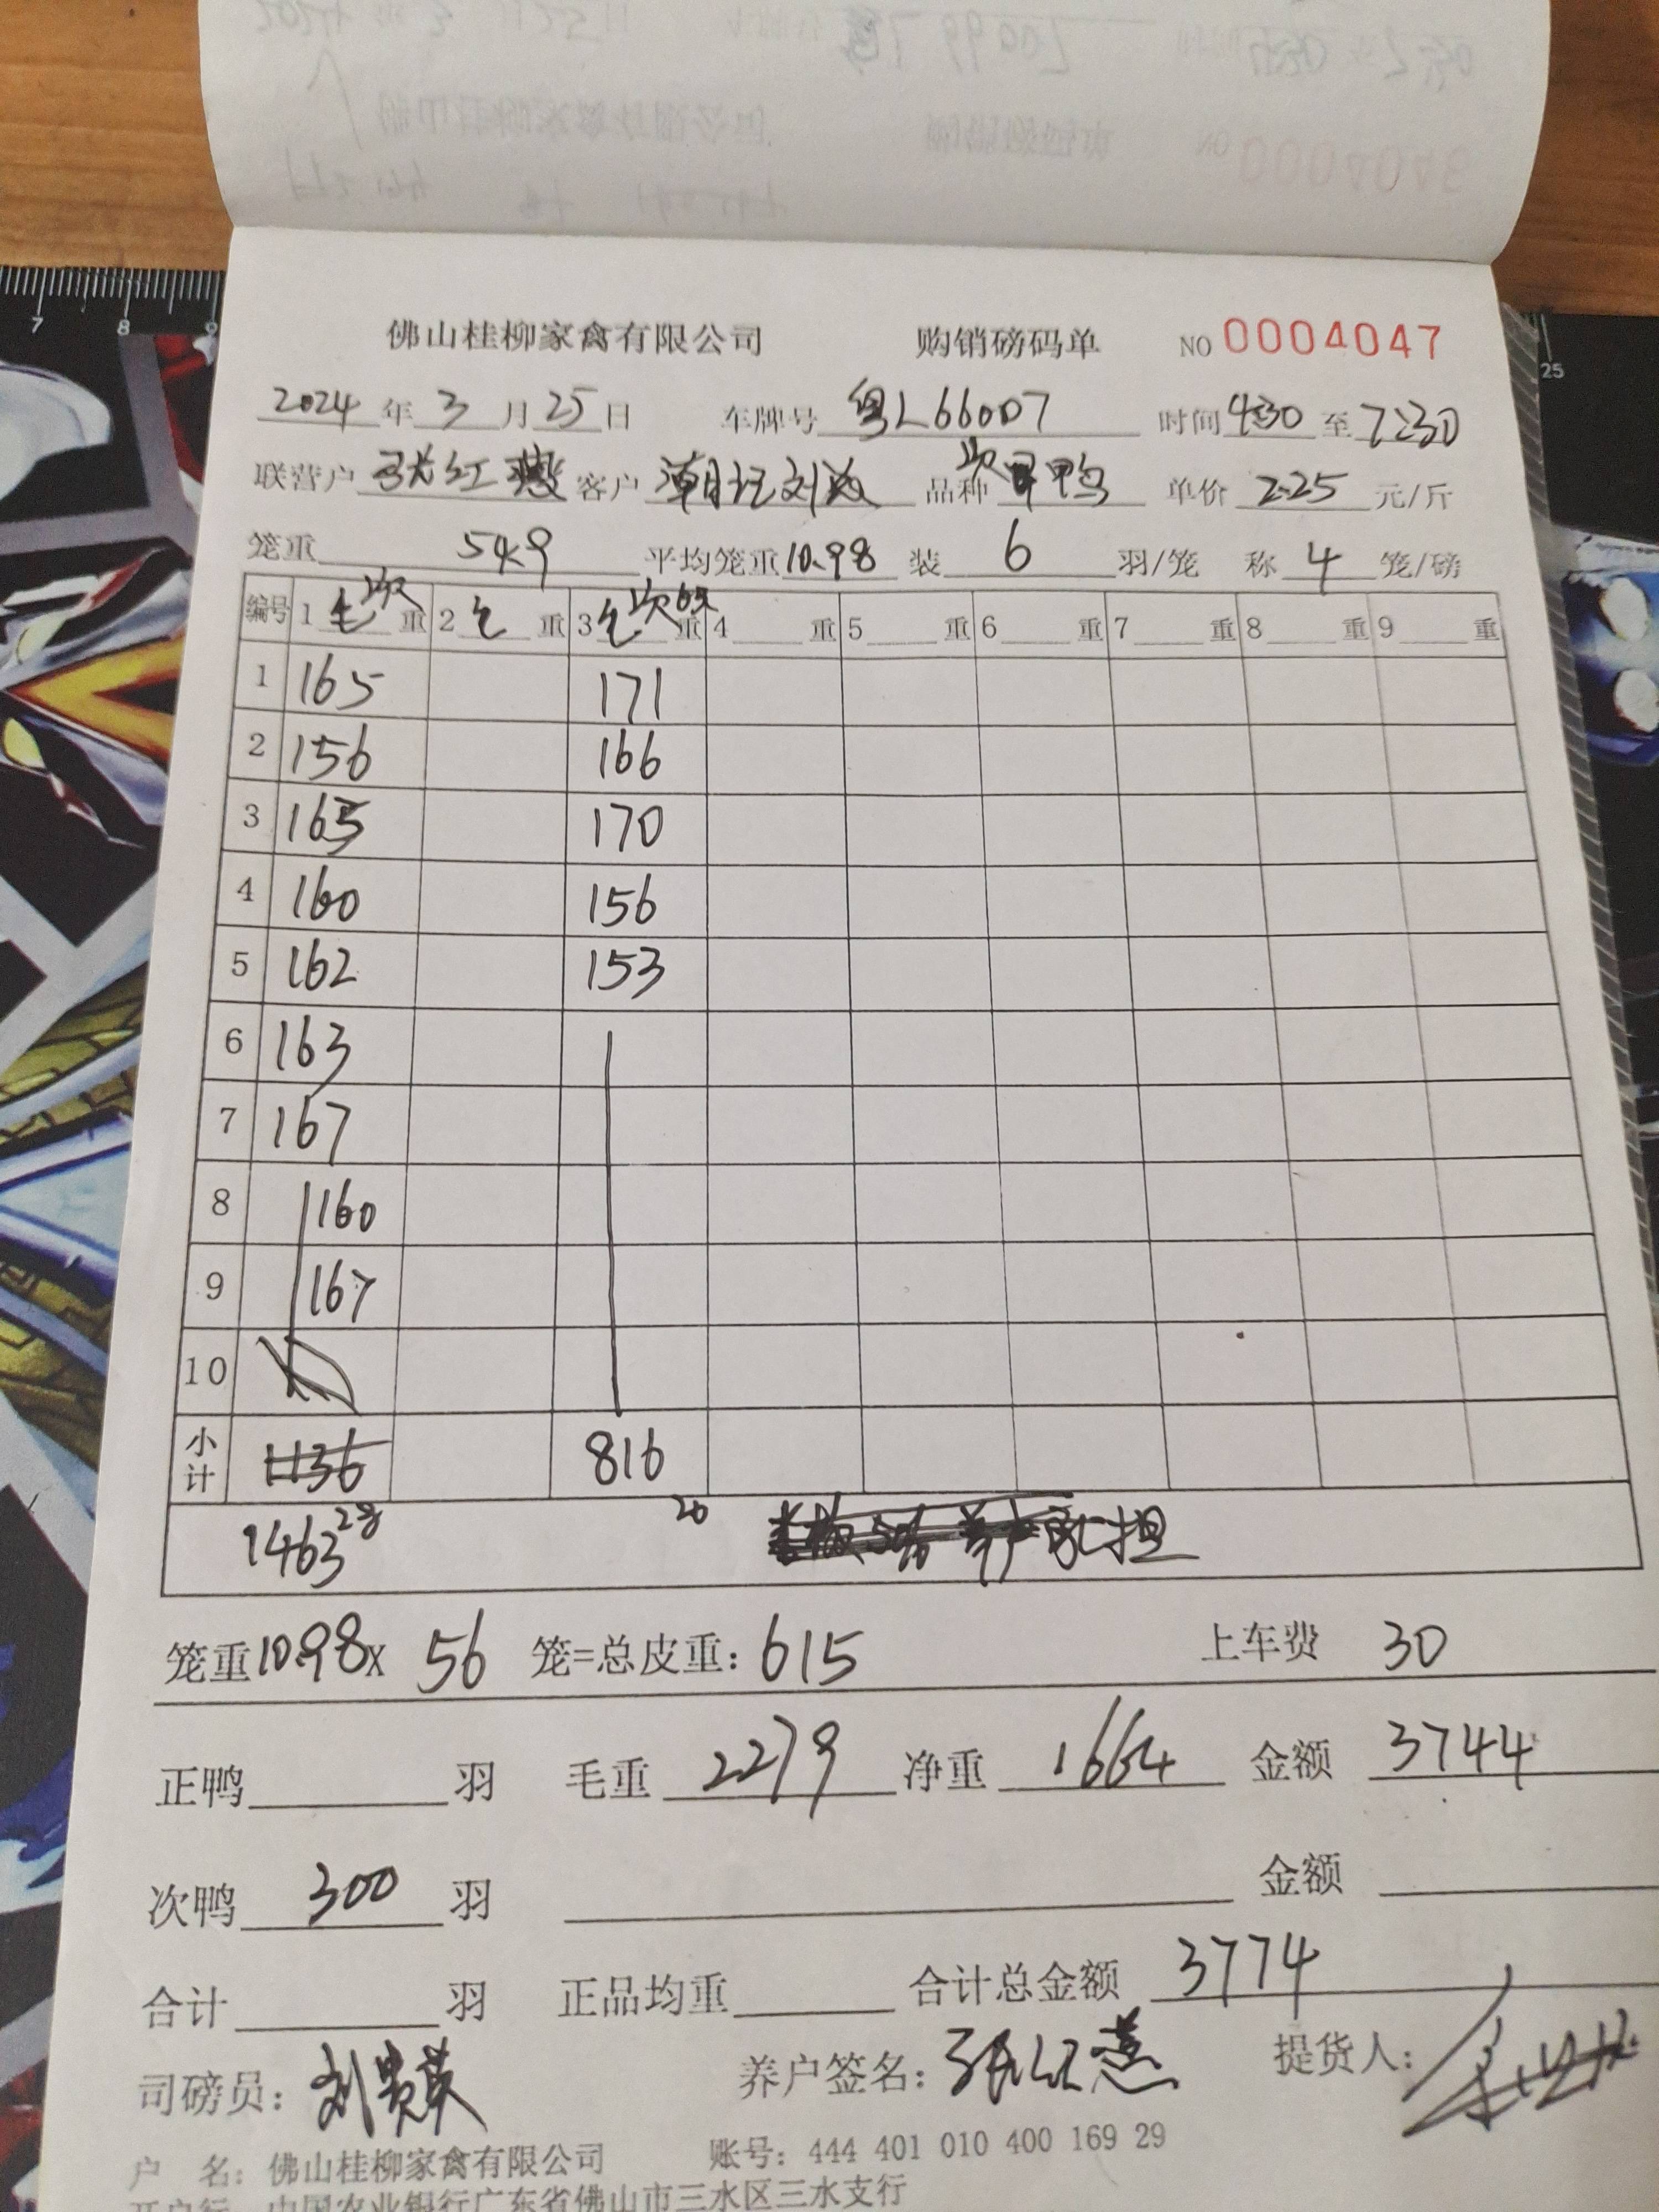 佛山桂柳家禽有限公司 购销磅码单 NO 0004047
2024 年 3 月 25 日 车牌号 粤L66007 时间 4:30 至 7:30
联营户 张红燕 客户 潮汪刘 品种 次 鸭 单价 2.25 元/斤
笼重 549 平均笼重 10.98 装 6 羽/笼 称 4 笼/磅
编号 1 毛次 重 2 毛 重 3 毛次 重 4 重 5 重 6 重 7 重 8 重 9 重
1 165 171
2 156 166
3 165 170
4 160 156
5 162 153
6 163
7 167
8 160
9 167
10
小计 1136 816
1463 28 20 担
笼重 10.98 X 56 笼=总皮重: 615 上车费 30
正鸭 羽 毛重 2279 净重 1664 金额 3744
次鸭 300 羽 金额
合计 羽 正品均重 合计总金额 3774
司磅员: 刘贵英 养户签名: 张红燕 提货人:
户 名: 佛山桂柳家禽有限公司 账号: 444 401 010 400 169 29
开户行: 中国农业银行广东省佛山市三水区三水支行